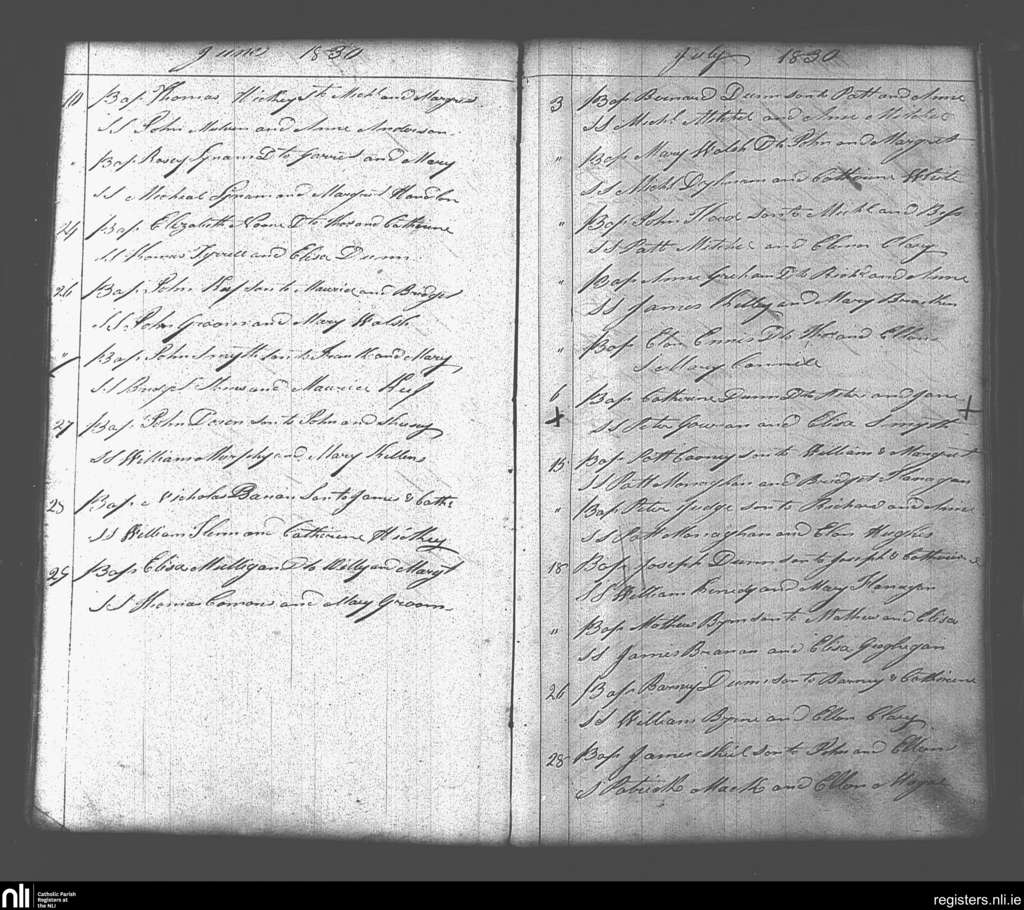 June 1830
10 Bap Thomas Hickey S to Michl and Margret
SS John Melun and Anne Anderson
" Bap Rosey Lynam D to Garret and Mary
SS Micheal Lynam and Margret Handlon
24 Bap Elizabeth Noone D to Thos and Catherine
SS Thomas Tyrrell and Elisa Dunn
26 Bap John Keef son to Maurice and Bridget
SS John Groom and Mary Walsh
" Bap John Smyth son to Frank and Mary
SS Bridget and Maurice Keef
27 Bap John Doron son to John and
SS William Murphy and Mary Killen
23 Bap Nicholas Banan Son to James & Cathe
SS William Flinn and Catherine Hickey
25 Bap Elisa Mulligan D to Willy and Margt
SS Thomas Comons and Mary Groom
July 1830
3 Bap Bernard Dunn son to Patt and Anne
SS Michl Mitchel and Anne Mitchel
" Bap Mary Walsh D to John and Margret
SS Michl and Catherine White
" Bap John Flood son to Michl and Bess
SS Patt Mitchel and Elenor Clary
" Bap Anne Greham D to Richd and Anne
SS James Kelley and Mary Bracken
" Bap Elen Ennis D to Thos and Ellen
S Mary Connell
6 Bap Catherine Dunn D to Peter and Jane
SS Peter Gowran and Elisa Smyth
15 Bap Patt Carney son to William & Margret
SS Patt Monaghan and Bridget Flanagan
" Bap Peter Judge son to Richard and Anne
SS Patt Monaghan and Elen Hughes
18 Bap Joseph Dunn son to Joseph & Catherine
SS William Kenedy and Mary Flanagan
" Bap Mathew Byrn son to Mathew and Elisa
SS James Branan and Elisa Geoghegan
26 Bap Barney Dunn son to Barney & Catherine
SS William Byrne and Ellen Clary
28 Bap James Sheil son to John and Ellen
S Patrick Mack and Ellen Magee
nli Catholic Parish
Registers at
the NLI
registers.nli.ie